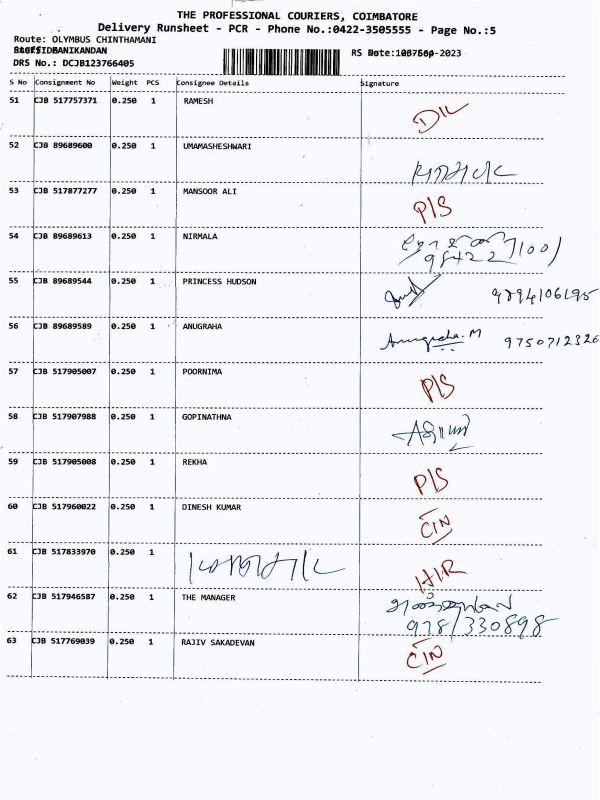 THE PROFESSIONAL COURIERS, COIMBATORE
Delivery Runsheet - PCR - Phone No.:0422-3505555 - Page No.:5
Route: OLYMBUS CHINTHAMANI
DRS No.: DCJB123766405
S No Consignment No Weight PCS Consignee Details Signature
51 CJB 517757371 0.250 1 RAMESH
52 CJB 89689600 0.250 1 UMAMASHESHWARI
53 CJB 517877277 0.250 1 MANSOOR ALI P/S
54 CJB 89689613 0.250 1 NIRMALA
55 CJB 89689544 0.250 1 PRINCESS HUDSON 9894106195
56 CJB 89689589 0.250 1 ANUGRAHA Anugraha.M 9750712326
57 CJB 517905007 0.250 1 POORNIMA P/S
58 CJB 517907988 0.250 1 GOPINATHNA
59 CJB 517905008 0.250 1 REKHA P/S
60 CJB 517960022 0.250 1 DINESH KUMAR CIN
61 CJB 517833970 0.250 1
62 CJB 517946587 0.250 1 THE MANAGER
63 CJB 517769039 0.250 1 RAJIV SAKADEVAN CIN